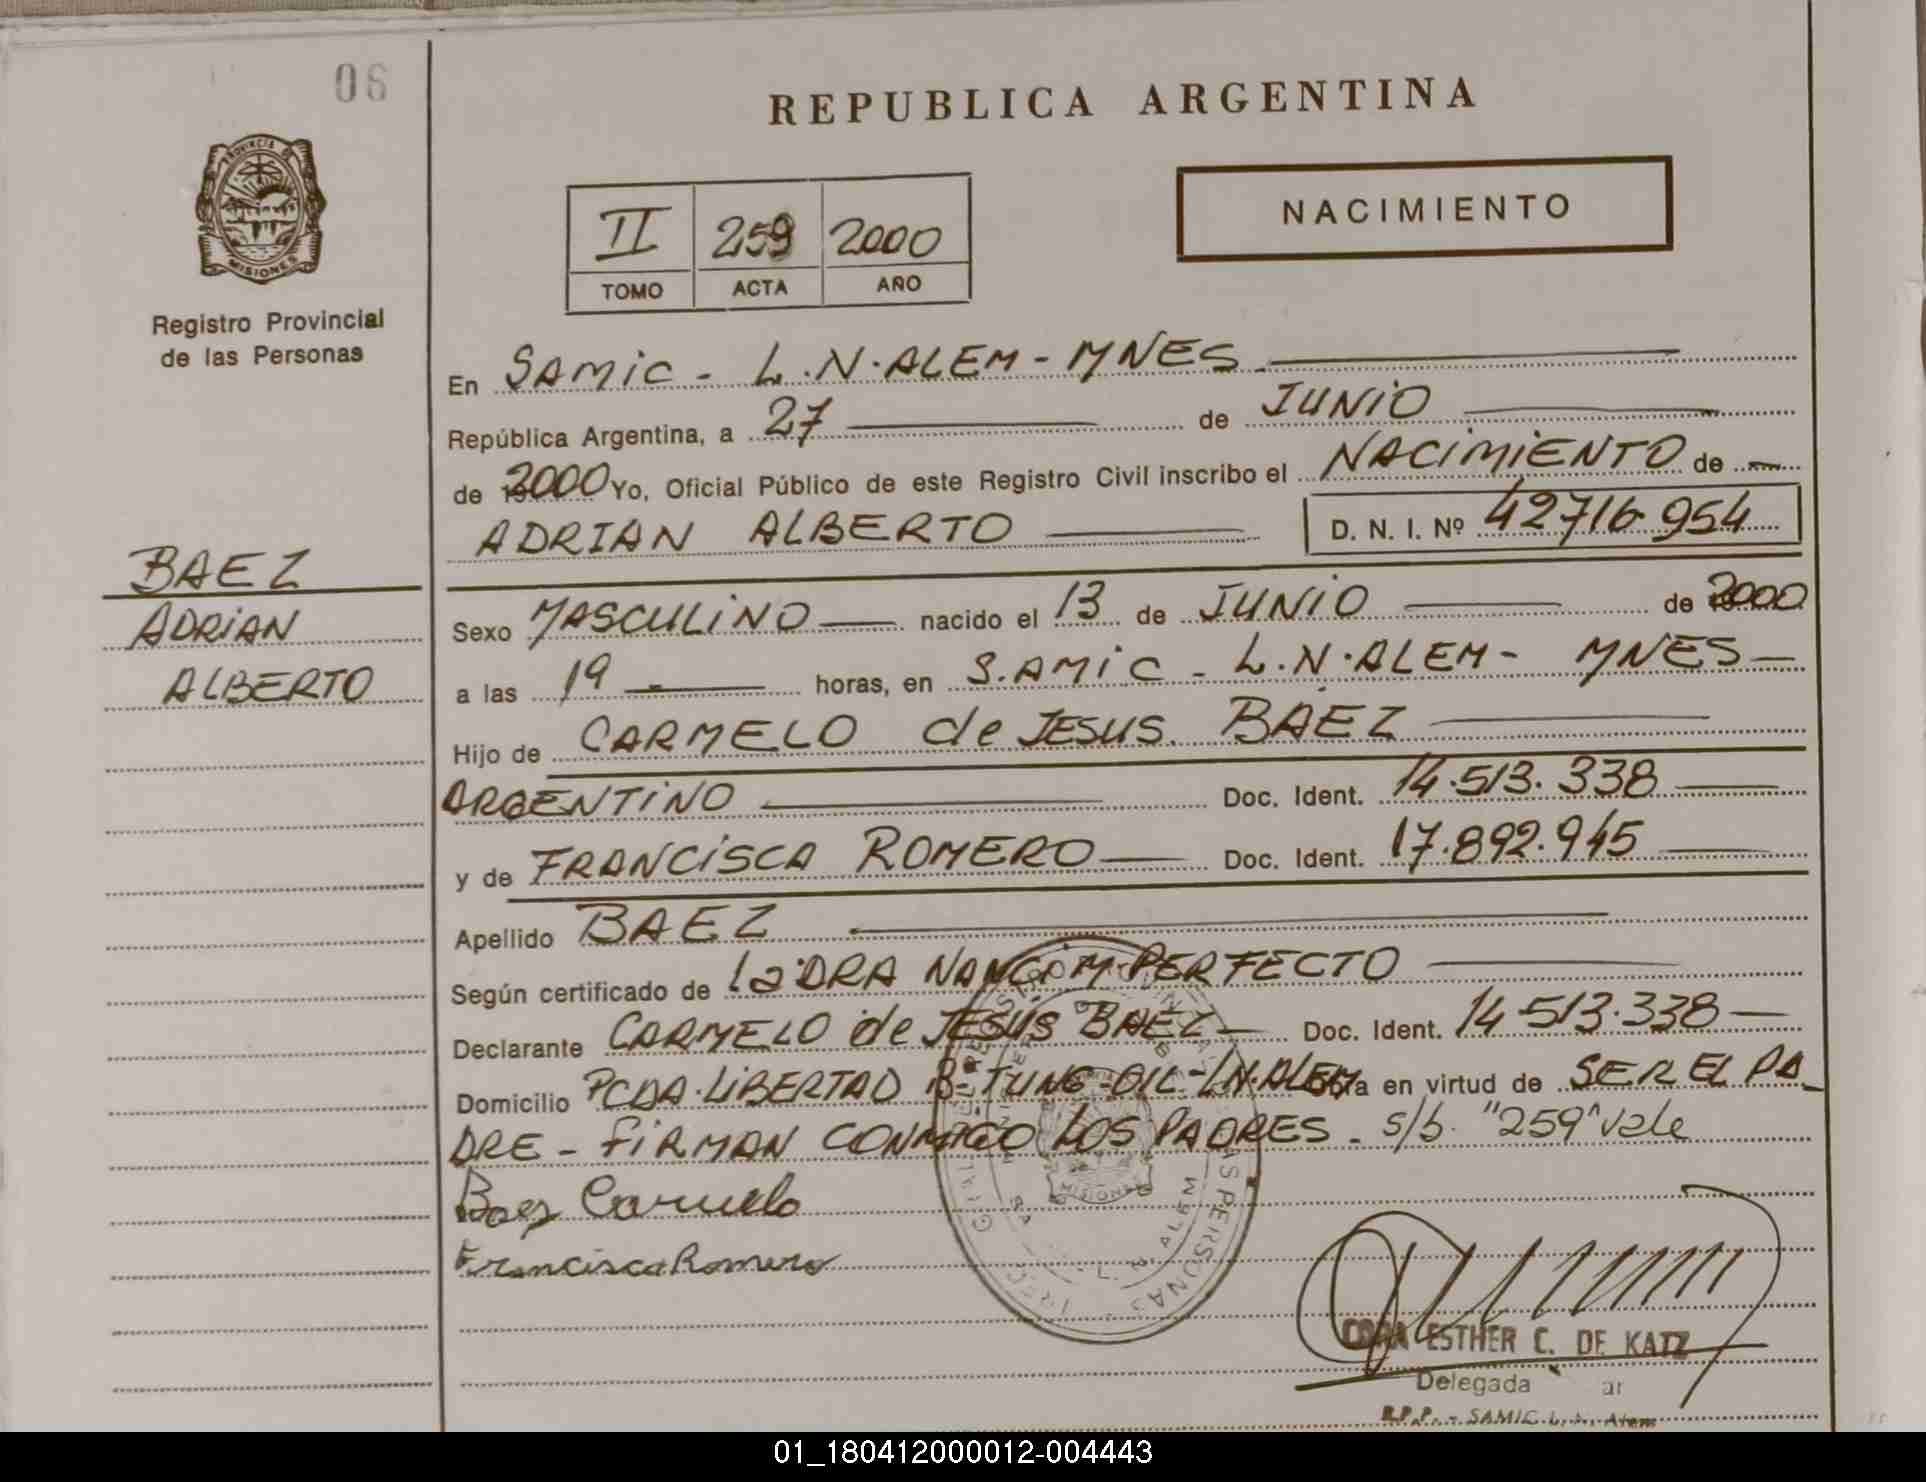 06
REPUBLICA ARGENTINA
PROVINCIA DE
MISIONES
Registro Provincial
de las Personas
II 259 2000
TOMO ACTA AÑO
NACIMIENTO
En SAMIC - L.N.ALEM - MNES
República Argentina, a 27 de JUNIO
de 2000 Yo, Oficial Público de este Registro Civil inscribo el NACIMIENTO de
ADRIAN ALBERTO D. N. I. Nº 42716954
BAEZ
ADRIAN
ALBERTO
Sexo MASCULINO nacido el 13 de JUNIO de 2000
a las 19 horas, en S.AMIC - L.N.ALEM - MNES
Hijo de CARMELO de JESUS BAEZ
ARGENTINO Doc. Ident. 14.513.338
y de FRANCISCA ROMERO Doc. Ident. 17.892.945
Apellido BAEZ
Según certificado de la DRA NANCI M PERFECTO
Declarante CARMELO de JESÚS BAEZ Doc. Ident. 14.513.338
Domicilio PCDA. LIBERTAD Bº TUNG-OIL-L.N.ALEM en virtud de SER EL PA-
DRE - FIRMAN CONMIGO LOS PADRES - s/b. "259" vale
Baez Carmelo
Francisca Romero
MISIONES
L. N. ALEM
CORA ESTHER C. DE KATZ
Delegada
R.P.P. - SAMIC L. N. Alem
01_180412000012-004443